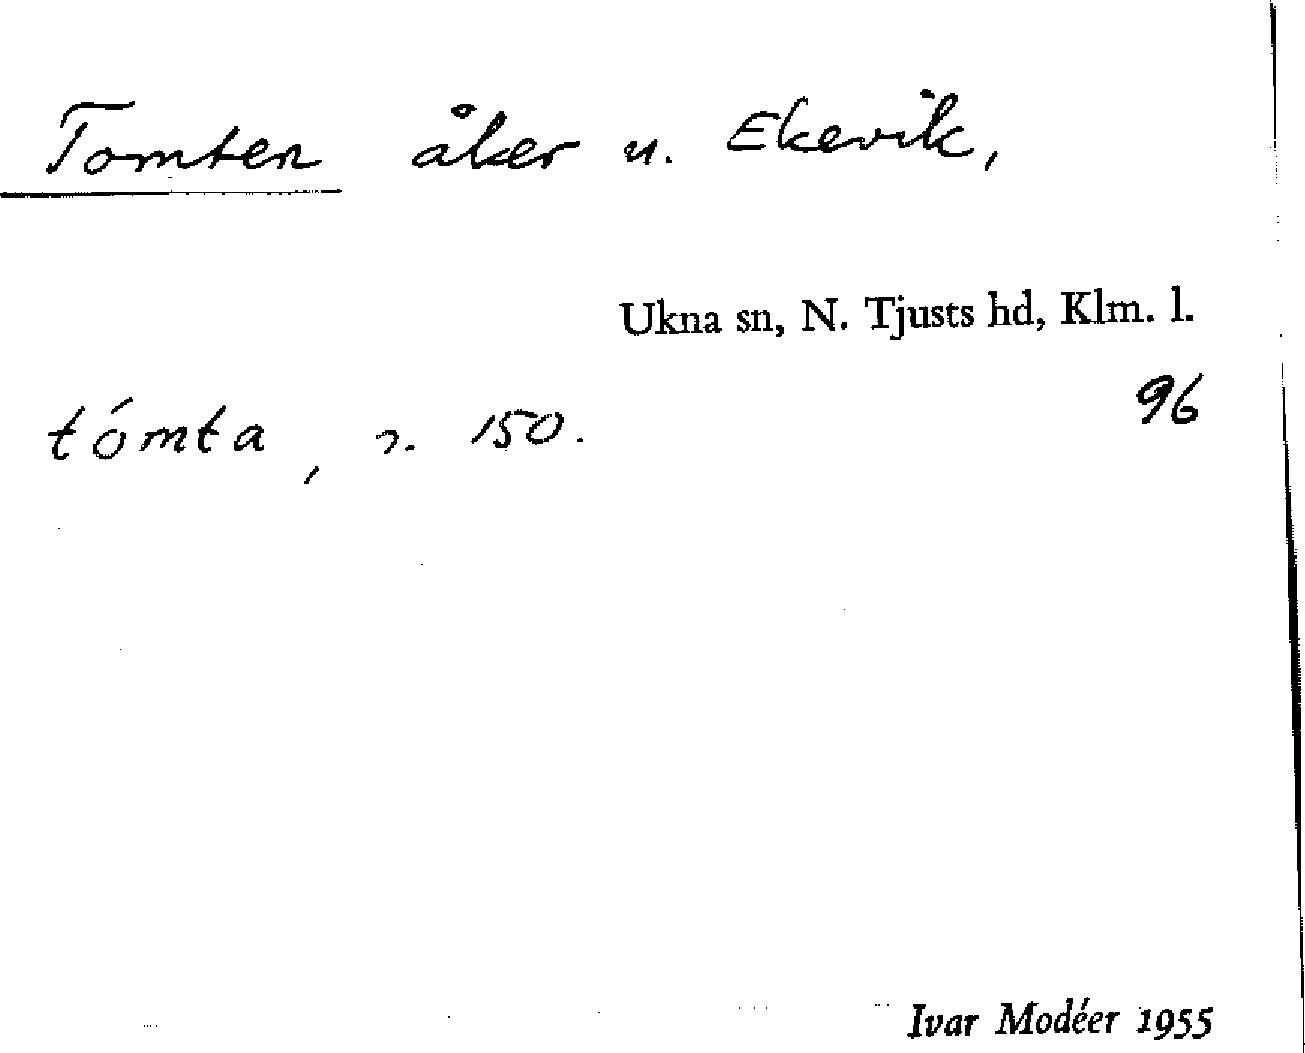 Tomten åker u. Ekevik,
Ukna sn, N. Tjusts hd, Klm. l.
96
tómta, n. 150.
Ivar Modéer 1955